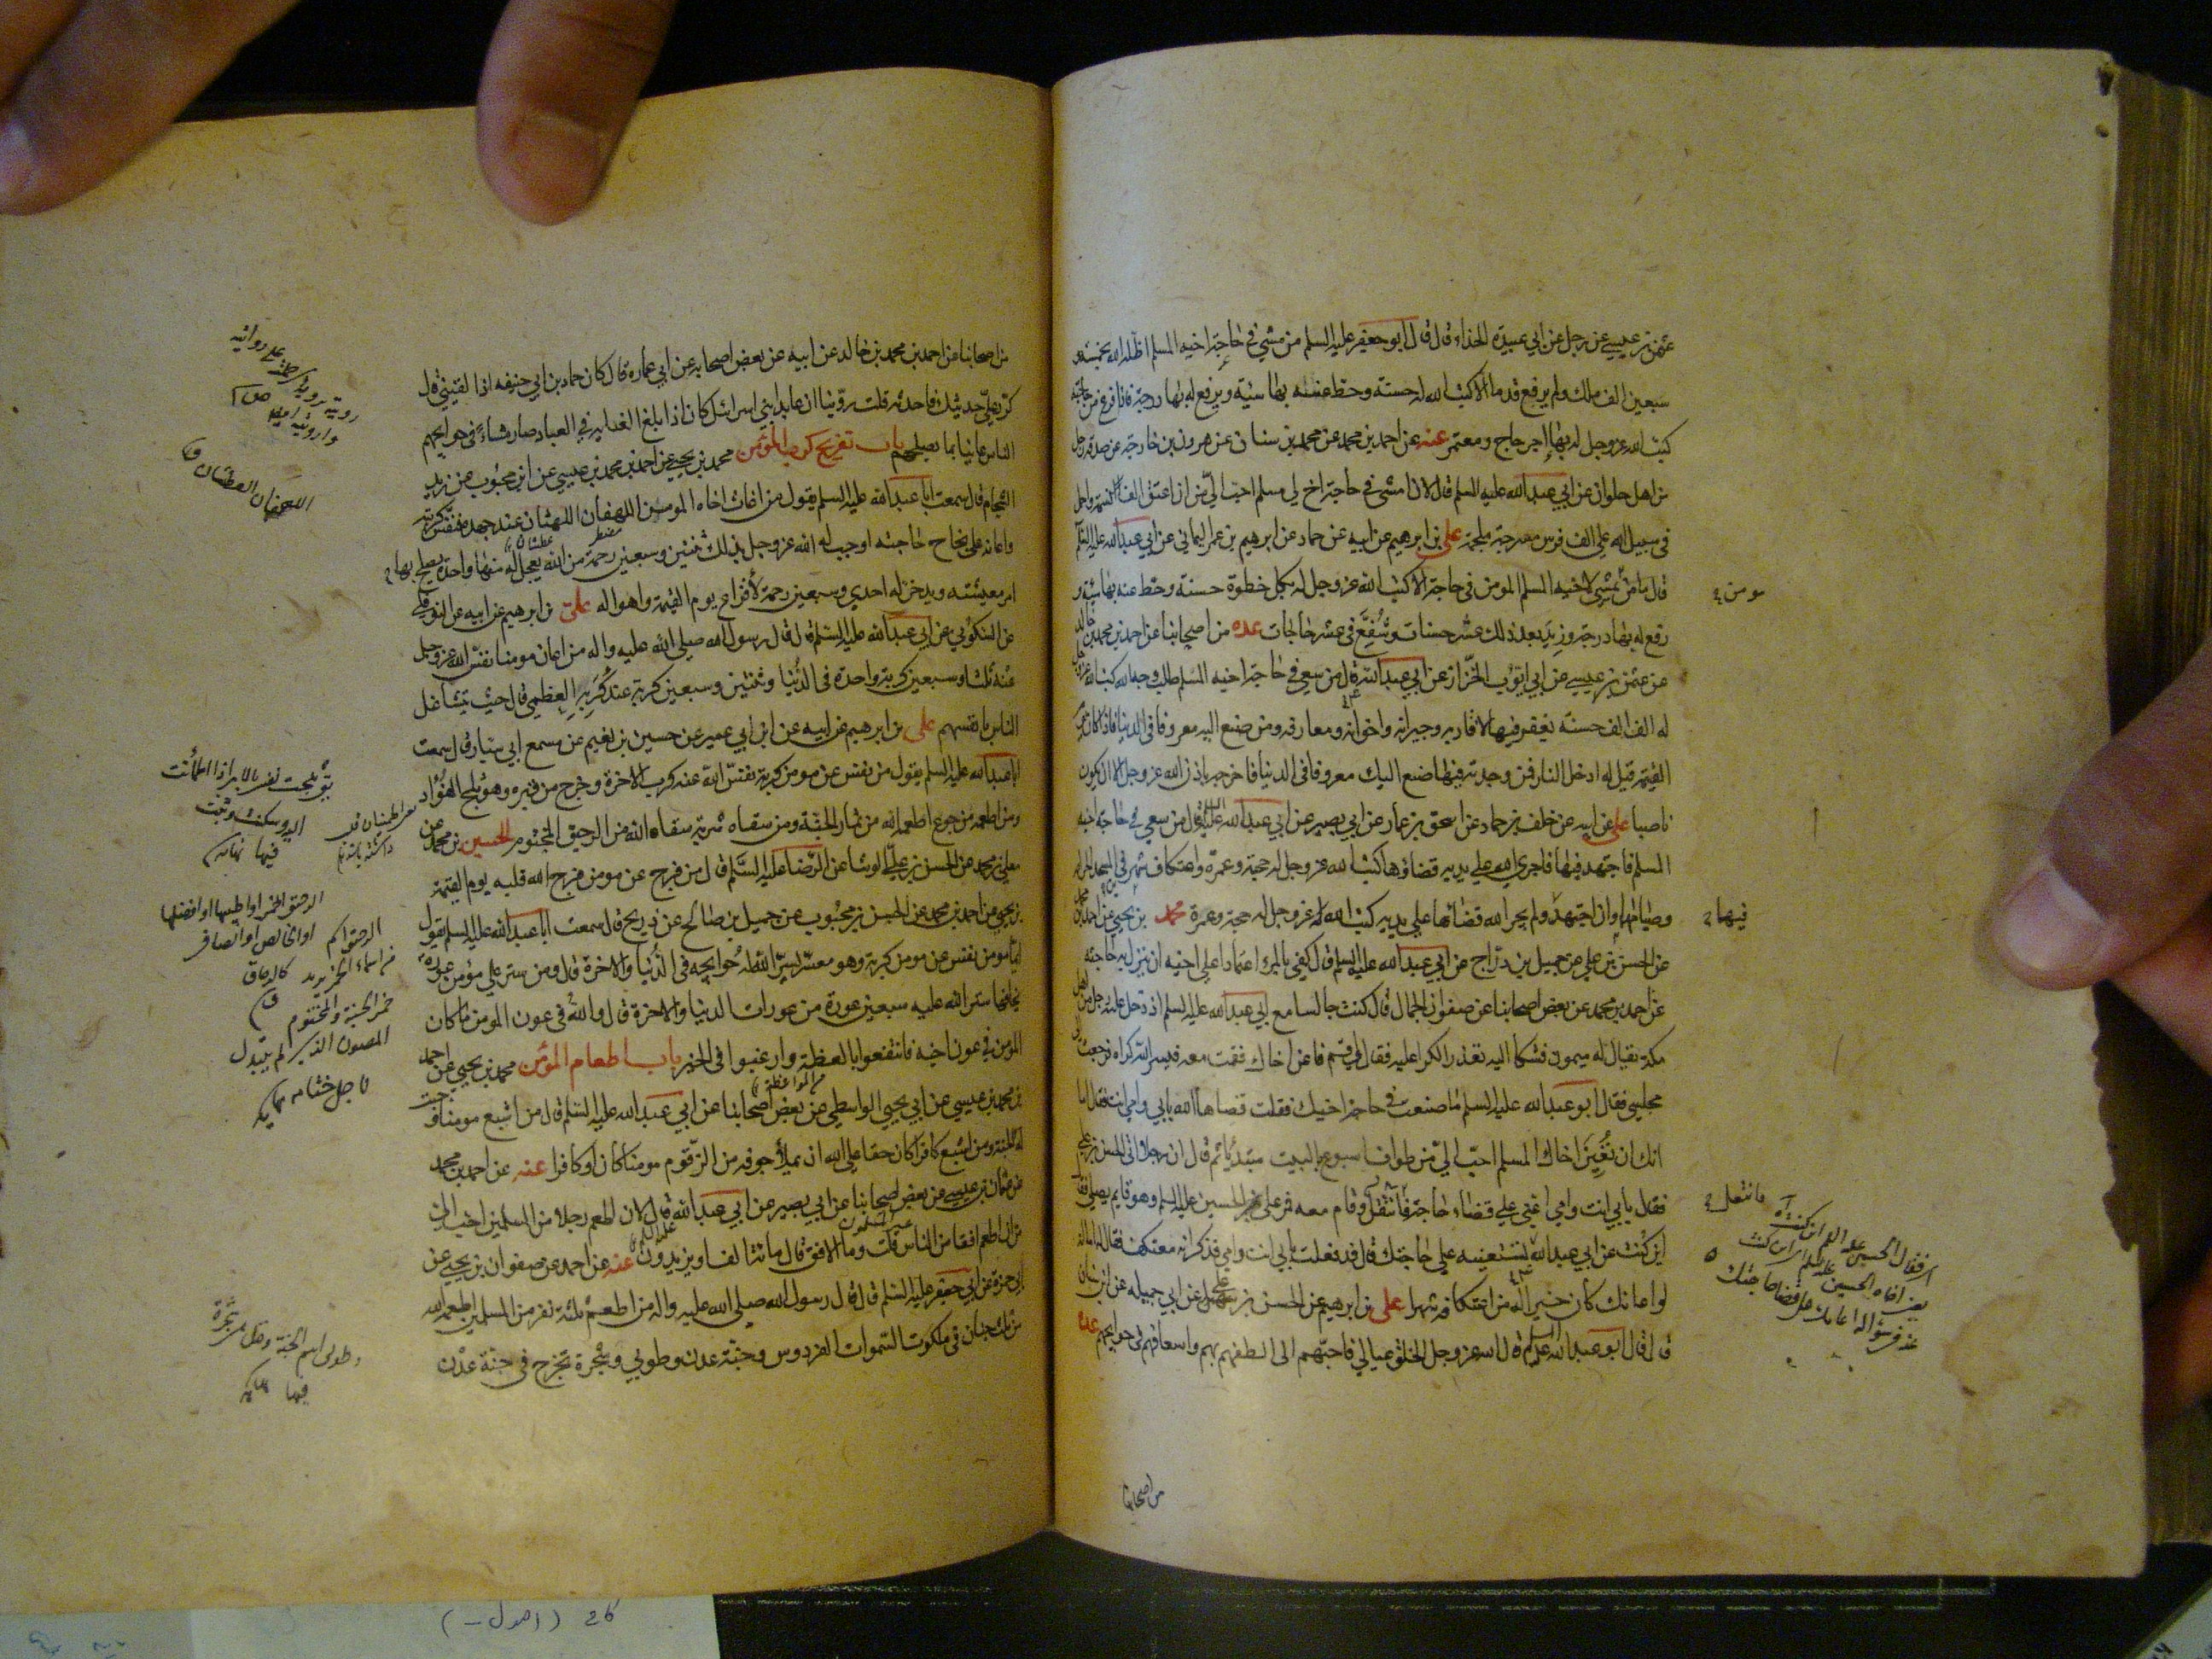 عثمن بن عيسى عن رجل عن ابي عبيدة الحذاء قال قال ابو جعفر عليه السلم من مشى في حاجة اخيه المسلم اظله الله بخمسة و
سبعين الف ملك ولم يرفع قدما الا كتب الله له حسنة وحط عنه بها سيئة ويرفع له بها درجة فاذا فرغ من حاجته
كتب الله عز وجل له بها اجر حاج ومعتمر عنه عن احمد بن محمد عن محمد بن سنان عن هرون بن خارجة عن صدقة رجل
من اهل حلوان عن ابي عبد الله عليه السلم قال لان امشي في حاجة اخ لي مسلم احب الي من ان اعتق الف نسمة واحمل
في سبيل الله على الف فرس مسرجة ملجمة علي بن ابرهيم عن ابيه عن حماد عن ابرهيم بن عمر اليماني عن ابي عبد الله عليه السلم
قال ما من يمشي لاخيه المسلم المومن في حاجة الا كتب الله عز وجل له بكل خطوة حسنة وحط عنه بها سيئة و
مومن
رفع له بها درجة وزيد بعد ذلك عشر حسنات وشفع في عشر حاجات عده من اصحابنا عن احمد بن محمد بن خالد
عن عثمن بن عيسى عن ابي ايوب الخزاز عن ابي عبد الله قال من سعى في حاجة اخيه المسلم طلب وجه الله كتب الله عز وجل
له الف الف حسنة يغفر فيها لاقاربه وجيرانه واخوانه ومعارفه ومن صنع اليه معروفا في الدنيا فاذا كان يوم
القيمة قيل له ادخل النار فمن وجدته فيها صنع اليك معروفا في الدنيا فاخرجه باذن الله عز وجل الا ان يكون
ناصبيا علي عن ابيه عن خلف بن حماد عن اسحق بن عمار عن ابي بصير عن ابي عبد الله عليه السلم قال من سعى في حاجة اخيه
المسلم فاجتهد فيها فاجرى الله على يديه قضاؤها كتب الله عز وجل له حجة وعمرة واعتكاف شهرين في المسجد الحرام
وصيامهما وان اجتهد ولم يجر الله قضائها على يديه كتب الله له عز وجل له حجة وعمرة محمد بن يحيى عن احمد بن محمد
فيها
عن الحسن بن علي عن جميل بن دراج عن ابي عبد الله عليه السلم قال كفى بالمرء اعتمادا على اخيه ان ينزل به حاجته
عن احمد بن محمد عن بعض اصحابنا عن صفوان الجمال قال كنت جالسا مع ابي عبد الله عليه السلم اذ دخل عليه رجل من اهل
مكة يقال له ميمون فشكا اليه تعذر الكرا عليه فقال لي قم فاعن اخاك فقمت معه فيسر الله كراه فرجعت الى
مجلسي فقال ابو عبد الله عليه السلم ما صنعت في حاجة اخيك فقلت قضاها الله بابي وامي انت فقال اما
انك ان تعين اخاك المسلم احب الي من طواف اسبوع بالبيت مبتدئا ثم قال ان رجلا اتى الحسن بن علي
فقال بابي انت وامي اعني على قضاء حاجة فانتقل وقام معه فمر على الحسين عليه السلم وهو قايم يصلي فقال
فانتعل
اين كنت عن ابي عبد الله تستعينه على حاجتك قال قد فعلت بابي انت وامي فذكر انه معتكف فقال له اما انه
لو اعانك كان خيرا له من اعتكافه شهرا علي بن ابرهيم عن الحسن بن علي عن ابي جميله عن ابن سنان
قال قال ابو عبد الله عليه السلم قال الله عز وجل الخلق عيالي فاحبهم الي الطفهم بهم واسعاهم في حوايجهم عده
من اصحابنا
من اصحابنا عن احمد بن محمد بن خالد عن ابيه عن بعض اصحابه عن ابي عماره قال كان حماد بن ابي حنيفه اذا لقيني قال
كرر علي حديثك فاحدثه قلت روينا ان عابد بني اسرائيل كان اذا بلغ الغاية في العباد صار مشاء في حوايجهم
الناس عانيا بما يصلحهم باب تفريج كرب المؤمن محمد بن يحيى عن احمد بن محمد بن عيسى عن ابن محبوب عن زيد
الشحام قال سمعت ابا عبد الله عليه السلم يقول من اغاث اخاه المومن اللهفان اللهثان عند جهده فنفس كربته
واعانه على نجاح حاجته اوجب له الله عز وجل بذلك ثنتين وسبعين رحمة من الله يعجل له منها واحدة يصلح بها
امر معيشته ويدخر له احدى وسبعين رحمة لأفزاع يوم القيمة واهواله علي بن ابرهيم عن ابيه عن النوفلي
عن السكوني عن ابي عبد الله عليه السلم قال قال رسول الله صلى الله عليه واله من اعان مومنا نفس الله عز وجل
عنه ثلثا وسبعين كربة واحدة في الدنيا وثنتين وسبعين كربة عند كربه العظمى قال حيث يتشاغل
الناس بانفسهم علي بن ابرهيم عن ابيه عن ابن ابي عمير عن حسين بن نعيم عن مسمع ابي سيار قال سمعت
ابا عبد الله عليه السلم يقول من نفس عن مومن كربة نفس الله عنه كرب الاخرة وخرج من قبره وهو ثلج الفؤاد
ومن اطعمه من جوع اطعمه الله من ثمار الجنة ومن سقاه شربة سقاه الله من الرحيق المختوم الحسين بن محمد عن
معلى بن محمد عن الحسن بن علي الوشا عن الرضا عليه السلم قال من فرج عن مومن فرج الله قلبه يوم القيمة
بن يحيى عن احمد بن محمد عن الحسن بن محبوب عن جميل بن صالح عن ذريح قال سمعت ابا عبد الله عليه السلم يقول
ايما مومن نفس عن مومن كربة وهو معسر يسر الله له حوايجه في الدنيا والاخرة قال ومن ستر على مؤمن عورة
يخافها ستر الله عليه سبعين عورة من عورات الدنيا والاخرة قال والله في عون المومن ما كان
المؤمن في عون اخيه فانتفعوا بالعظة وارغبوا في الخير باب اطعام المؤمن محمد بن يحيى عن احمد
بن محمد بن عيسى عن ابي يحيى الواسطي عن بعض اصحابنا عن ابي عبد الله عليه السلم قال من اشبع مومنا وجبت
له الجنة ومن اشبع كافرا كان حقا على الله ان يملأ جوفه من الزقوم مومنا كان او كافرا عنه عن احمد بن محمد
عن عثمان بن عيسى عن بعض اصحابنا عن ابي بصير عن ابي عبد الله قال لان اطعم رجلا من المسلمين احب الي
من ان اطعم افقا من الناس قلت وما الافق قال مائة الف او يزيدون عنه عن احمد عن صفوان بن يحيى عن
ابي حمزة عن ابي جعفر عليه السلم قال قال رسول الله صلى الله عليه واله من اطعم ثلثة نفر من المسلمين اطعمه الله
من ثلث جنان في ملكوت السموات الفردوس وجنة عدن وطوبى وشجرة تخرج في جنة عدن
اللهفان العطشان ق
ثلجت نفسي بالامر اذا اطمأنت
اليه وسكنت وثبت
فيها نهايه
الرحيق الخمر او اطيبها او افضلها
او الخالص او الصافي
المصون الذي لم يتبدل
لاجل ختامه
وطوبى اسم الجنة وقيل شجرة
فيها
كافي (اصول -)